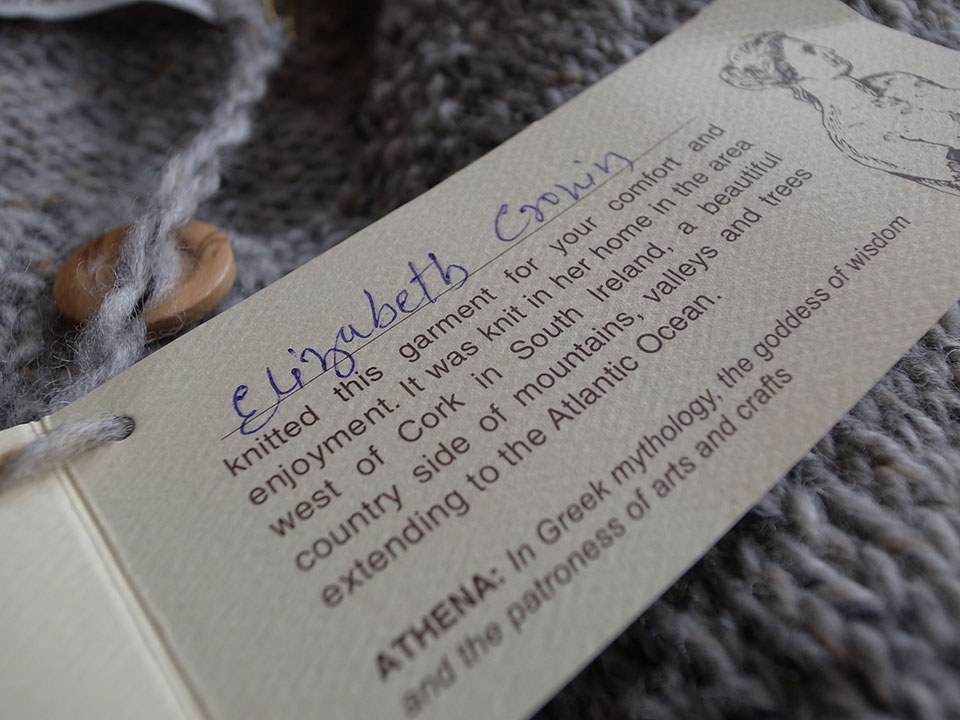 Elizabeth Cronin
knitted this garment for your comfort and
enjoyment. It was knit in her home in the area
west of Cork in South Ireland, a beautiful
country side of mountains, valleys and trees
extending to the Atlantic Ocean.
ATHENA: In Greek mythology, the goddess of wisdom
and the patroness of arts and crafts